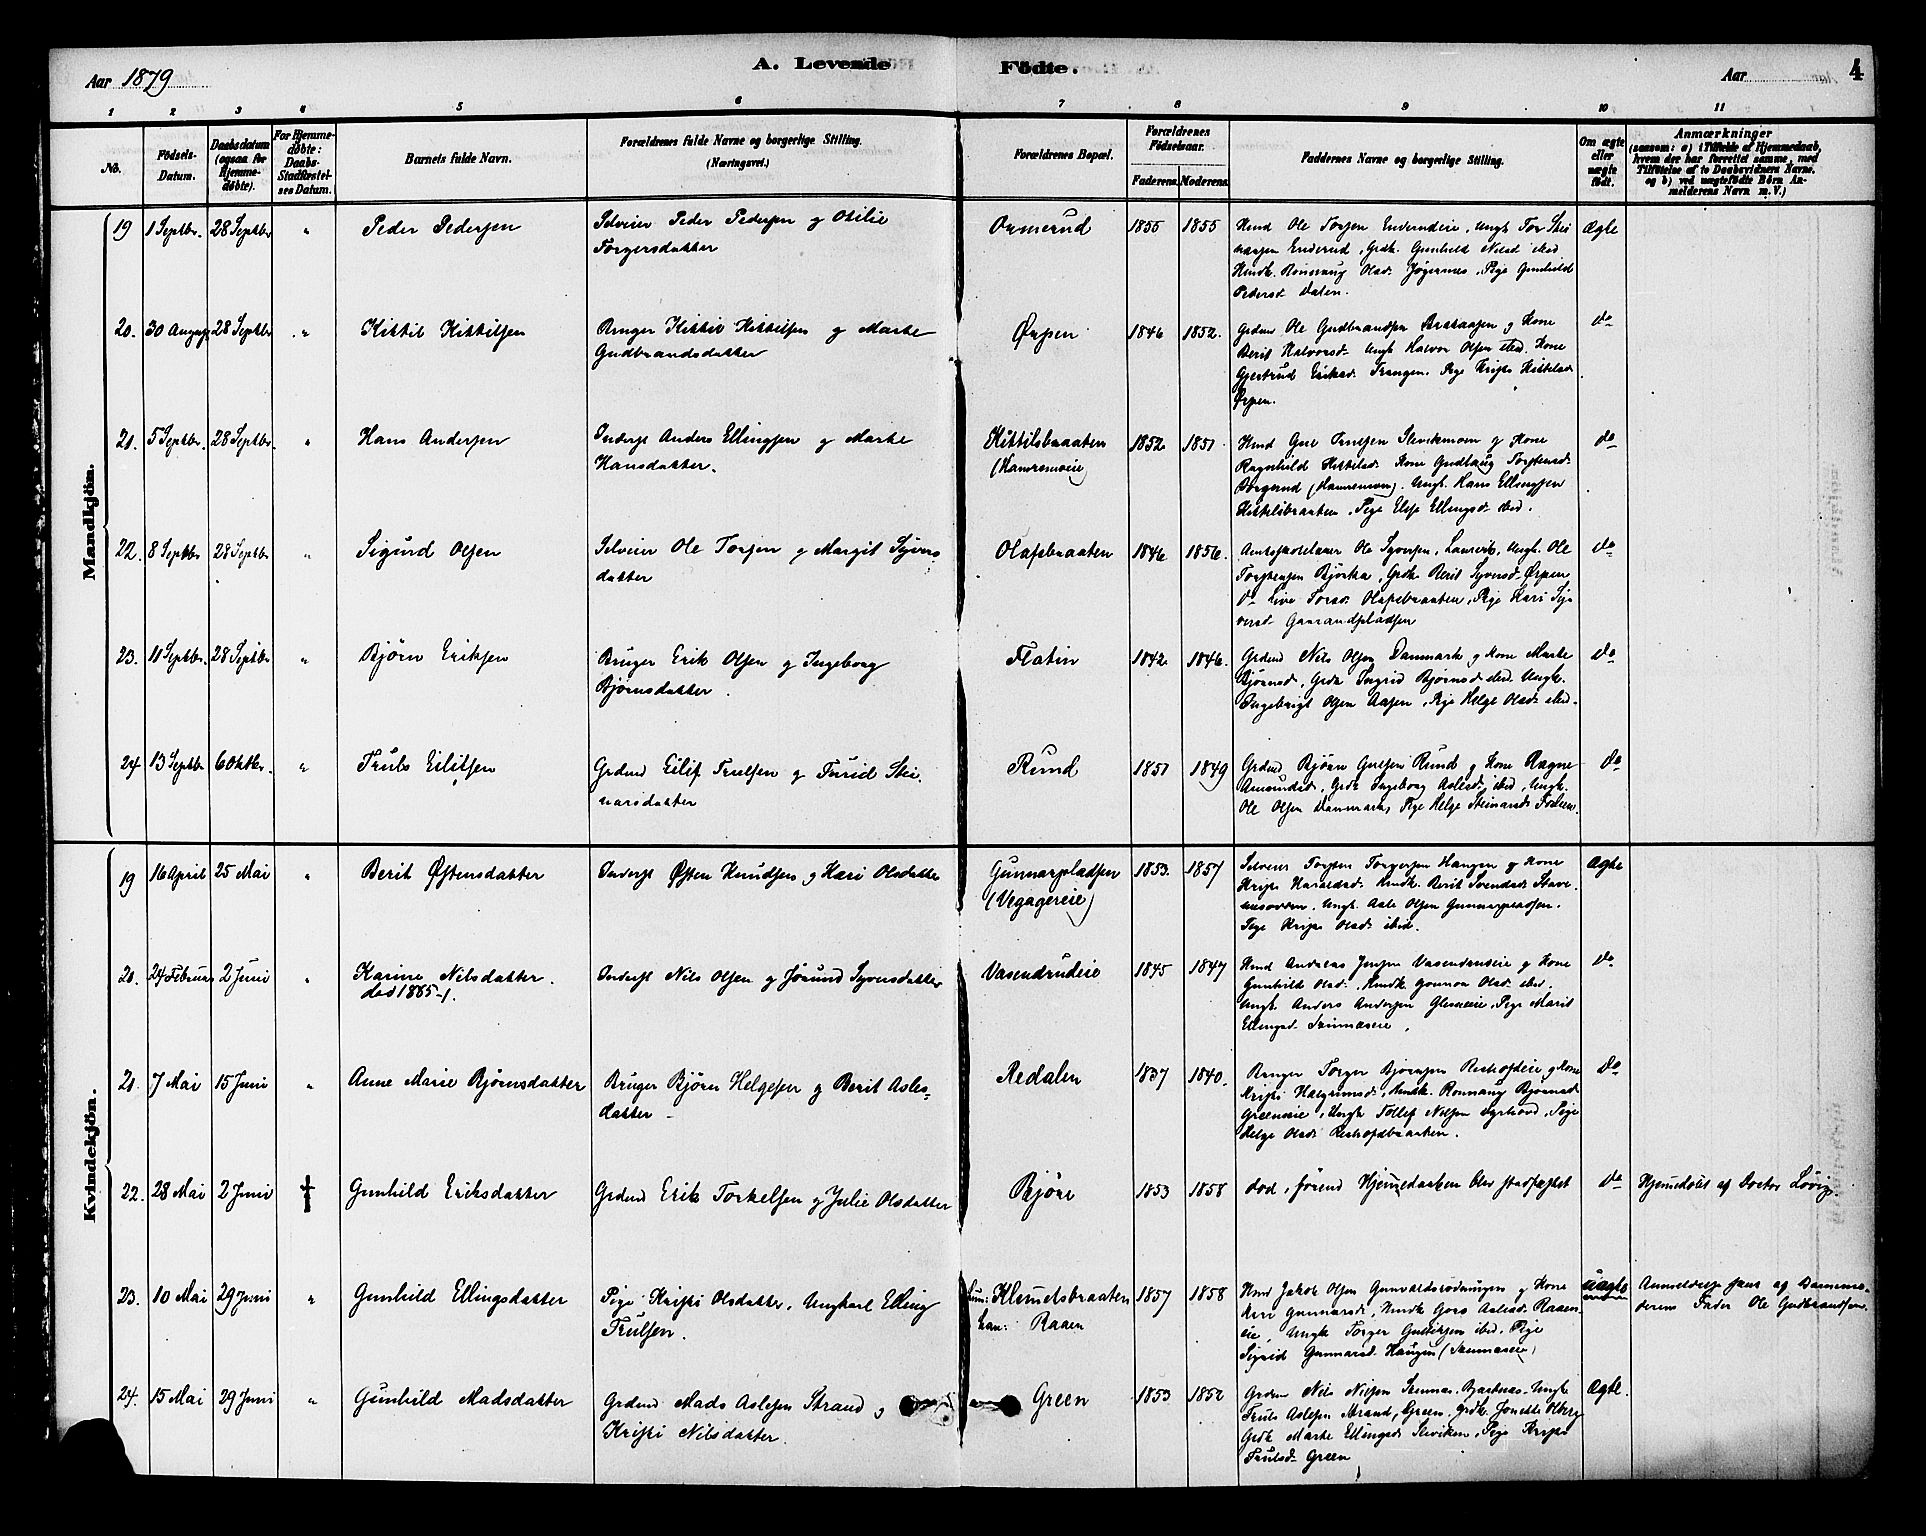 Aar 1879
A. Levende
Födte.
Aar
4
1 2 3 4 5 6 7 8 9 10 11
No.
Födsels-
Datum.
Daabsdatum
(ogsaa for
Hjemme-
døbte).
For Hjemme-
døbte:
Daabs-
Stadfæstel-
ses Datum.
Barnets fulde Navn.
Forældrenes fulde Navne og borgerlige Stilling.
(Næringsvei.)
Forældrenes Bopæl.
Forældrenes
Födselsaar.
Faderens. Moderens.
Faddernes Navne og borgerlige Stilling.
Om ægte
eller
uægte
født.
Anmærkninger
(saasom: a) i Tilfælde af Hjemmedaab,
hvem der har forrettet samme, med
Tilføielse af to Daabsvidners Navne,
og b) ved uægtefödte Börn An-
melderens Navn m. V.)
Mandkjön.
19 1 Septbr. 28 Septbr " Peder Pedersen
Selveier Peder Pedersen og Otilie
Torgersdatter
Ormerud 1855 1855
Hmd Ole Torsen Enderudeie, Ungk Tor Stei
narsen Enderud, Grdk. Gunhild Nilsd ibid
Hmdk. Rønnaug Olsd. Jøgernes, Pige Gunhild
Pedersd Dalen.
Ægte
20. 30 August 28 Septbr " Kittil Kittilsen
Bruger Kittil Kittilsen og Marte
Gudbrandsdatter
Ørpen 1846 1852.
Grdmd Ole Gudbrandsen Brataasen og Kone
Berit Halvorsd. Ungk Halvor Olsen ibid. Kone
Gjertrud Eriksd. Trangen. Pige Kristi Kittelsd
Ørpen.
do
21. 5 Septbr. 28 Septbr. " Hans Andersen
Inderst Anders Ellingsen og Marte
Hansdatter.
Kittilsbraaten
(Hamremoeie)
1852 1851
Hmd Gul Trulsen Slevikmoen og Kone
Ragnhild Kittilsd. Kone Gudbaug Torstensd.
Borgerud (Hamremoen). Ungk. Hans Ellingsen
Kittilsbraaten, Pige Else Ellingsd. ibid.
do
22. 8 Septbr 28 Septbr " Sigurd Olsen
Selveier Ole Torsen og Margit Syvers
datter
Olafsbraaten 1846 1856.
Amtsskolelærer Ole Syversen, Laurvik, Ungk. Ole
Torstensen Bjørka, Grdk Berit Syversd. Ørpen
do Live Torsd. Olafsbraaten, Pige Kari Sy
versd Gaarandpladsen
do
23. 11 Septbr. 28 Septbr " Bjørn Eriksen
Bruger Erik Olsen og Ingeborg
Bjørnsdatter.
Flatin 1842 1846.
Grdmd Nils Olsen Danmark og Kone Marte
Bjørnsd, Grdk Ingrid Bjørnsd ibid. Ungk.
Ingebrigt Olsen Aasen, Pige Helge Olsd. ibid.
do
24 13 Septbr 6 Oktbr. " Truls Eilifsen
Grdmd Eilif Trulsen og Turid Stei
narsdatter
Rund 1851 1849
Grdmd Bjørn Gulsen Rund og Kone Ragne
Amundsd., Grdk Ingeborg Aslesd. ibid, Ungk.
Ole Olsen Danmark, Pige Helge Steinarsd.
do
Kvindekjön.
19 16 April 25 Mai " Berit Østensdatter
Inderst Østen Knudsen og Kari Olsdatter
Gunnarpladsen
(Vegagereie)
1853. 1857
Selveier Torsten Torgersen Haugen og Kone
Kristi Haraldsd. Hmdk. Berit Svendsd.
Ungk. Asle Olsen Gunnarpladsen.
Pige Kristi Olsd. ibid.
Ægte
20. 24 Februar 2 Juni " Karine Nilsdatter.
død 1885-1.
Inderst Nils Olsen og Jørund Syversdatter
Vasendrudeie 1845 1847
Hmd Andreas Jensen Vasendrudeie og Kone
Gunhild Olsd. Hmdk Gonnor Olsd. ibid.
Ungk Anders Andersen Glesneeie, Pige Marit
Ellingsd. Skinnaseie.
do
21. 7 Mai 15 Juni " Anne Marie Bjørnsdatter
Bruger Bjørn Helgesen og Berit Asles-
datter
Redalen 1837 1840.
Bruger Torger Bjørnsen Ristofteie og Kone
Kristi Halgrimsd., Hmdk. Rønnaug Bjørnsd
Greeneeie, Ungk Tollef Nilsen Pige
Helge Olsd.
do
22. 28 Mai 2 Juni † Gunhild Eriksdatter
Grdmd Erik Torkelsen og Julie Olsdatter
Bjøre 1853 1858
død, førend Hjemmedaaben blev stadfæstet
do
Hjemmedøbt af Doctor Lövig.
23. 10 Mai 29 Juni " Gunhild Ellingsdatter
Pige Kristi Olsdatter, Ungkarl Elling
Trulsen.
hun: Klemetsbraaten
han: Raaen
1857 1858
Hmd Jakob Olsen Gunvaldsrødningen og Kone
Kari Gunnarsd, Hmdk Goro Aslesd. Raaen-
eie, Ungk Torger Gulliksen ibid, Pige
Sigrid Gunnarsd. Haugen (Skinnaseie)
uægte
Anmeldelse fors. af Barnemo-
derens Fader Ole Gudbrandsen.
24. 15 Mai 29 Juni " Gunhild Madsdatter
Grdmd Mads Aslesen Strand og
Kristi Nilsdatter.
Green 1853 1852
Grdmd Nils Nilsen Skinnas, Ungk
Truls Aslesen Strand, Green, grdk. Jonette Olberg
Grdk Marte Ellingsd. Sleviken, Pige Kristi
Trulsd. Green
Ægte.